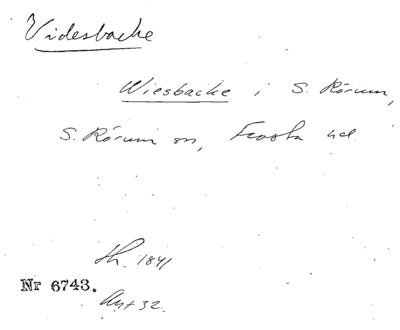 Videsbacke
Wiesbacke i S. Rörum,
S. Rörum sn, Frosta hd
Th. 1841
Nr 6743.
Ant 32.